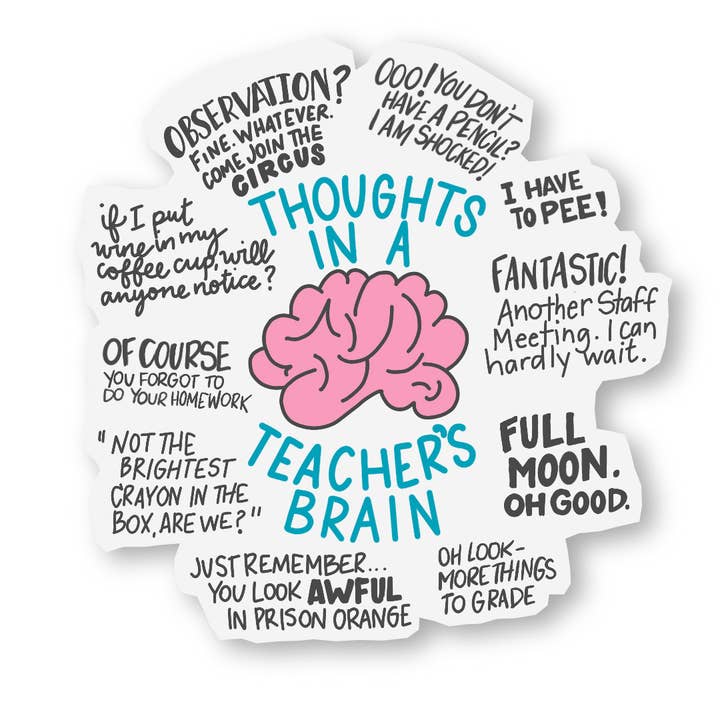 OBSERVATION?
FINE. WHATEVER.
COME JOIN THE
CIRCUS
OOO! YOU DON'T
HAVE A PENCIL?
I AM SHOCKED!
I HAVE
TO PEE!
THOUGHTS
IN A
TEACHER'S
BRAIN
if I put
wine in my
coffee cup, will
anyone notice?
FANTASTIC!
Another Staff
Meeting. I can
hardly wait.
OF COURSE
YOU FORGOT TO
DO YOUR HOMEWORK
"NOT THE
BRIGHTEST
CRAYON IN THE
BOX, ARE WE?"
FULL
MOON.
OH GOOD.
JUST REMEMBER...
YOU LOOK AWFUL
IN PRISON ORANGE
OH LOOK-
MORE THINGS
TO GRADE